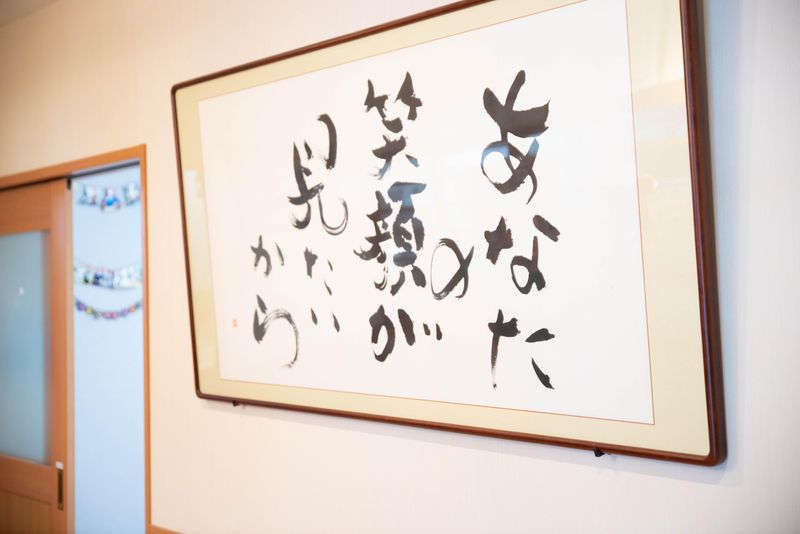 あなた
の
笑顔が
見たい
から